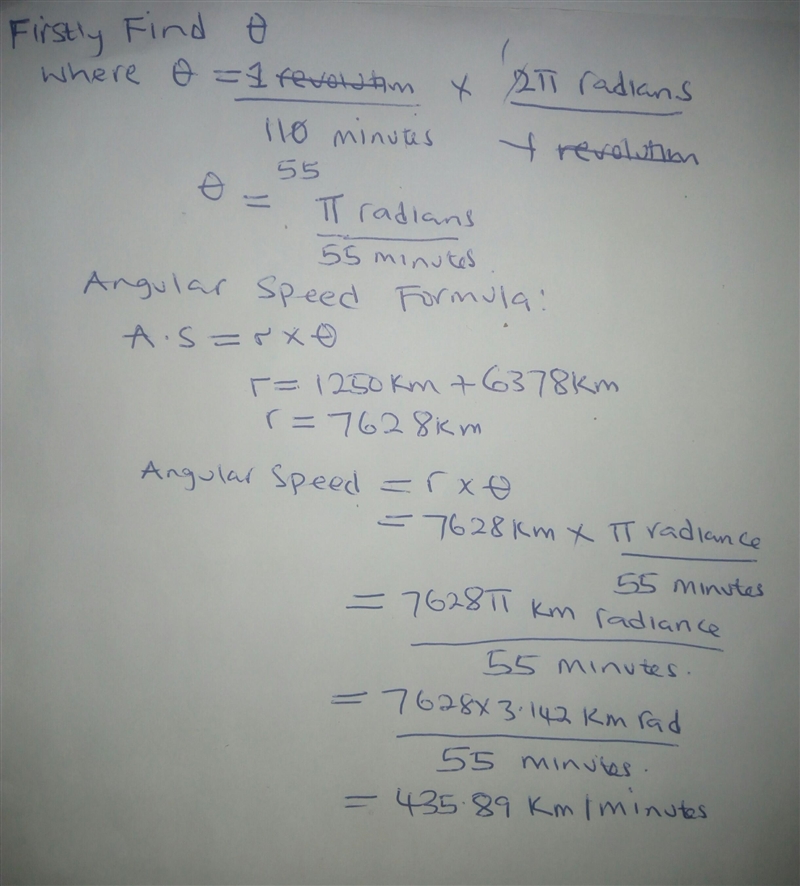 Firstly Find θ
where θ = 1 revolution × 1 2π radians
110 minutes 1 revolution
55
θ = π radians
55 minutes
Angular Speed Formula:
A.S = r × θ
r = 1250 km + 6378 km
r = 7628 km
Angular Speed = r × θ
= 7628 km × π radiance
55 minutes
= 7628π km radiance
55 minutes.
= 7628 × 3.142 km rad
55 minutes.
= 435.89 km/minutes